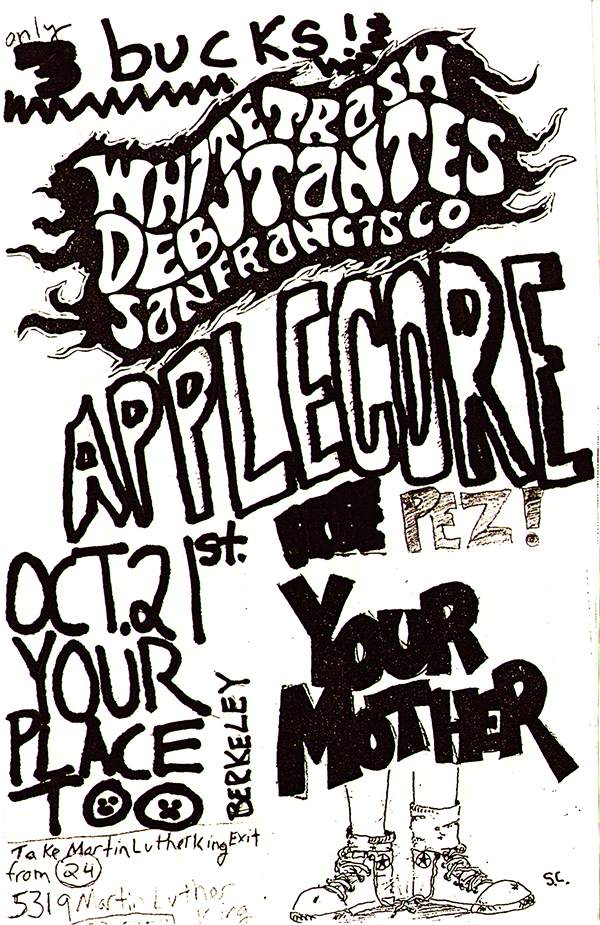 only
3 bucks!
WHITE TRASH
DEBUTANTES
SAN FRANCISCO
APPLECORE
PEZ!
OCT. 21st.
YOUR
PLACE
TOO
BERKELEY
YOUR
MOTHER
Take Martin Luther king Exit
from 24
5319 Martin Luther
king
S.C.